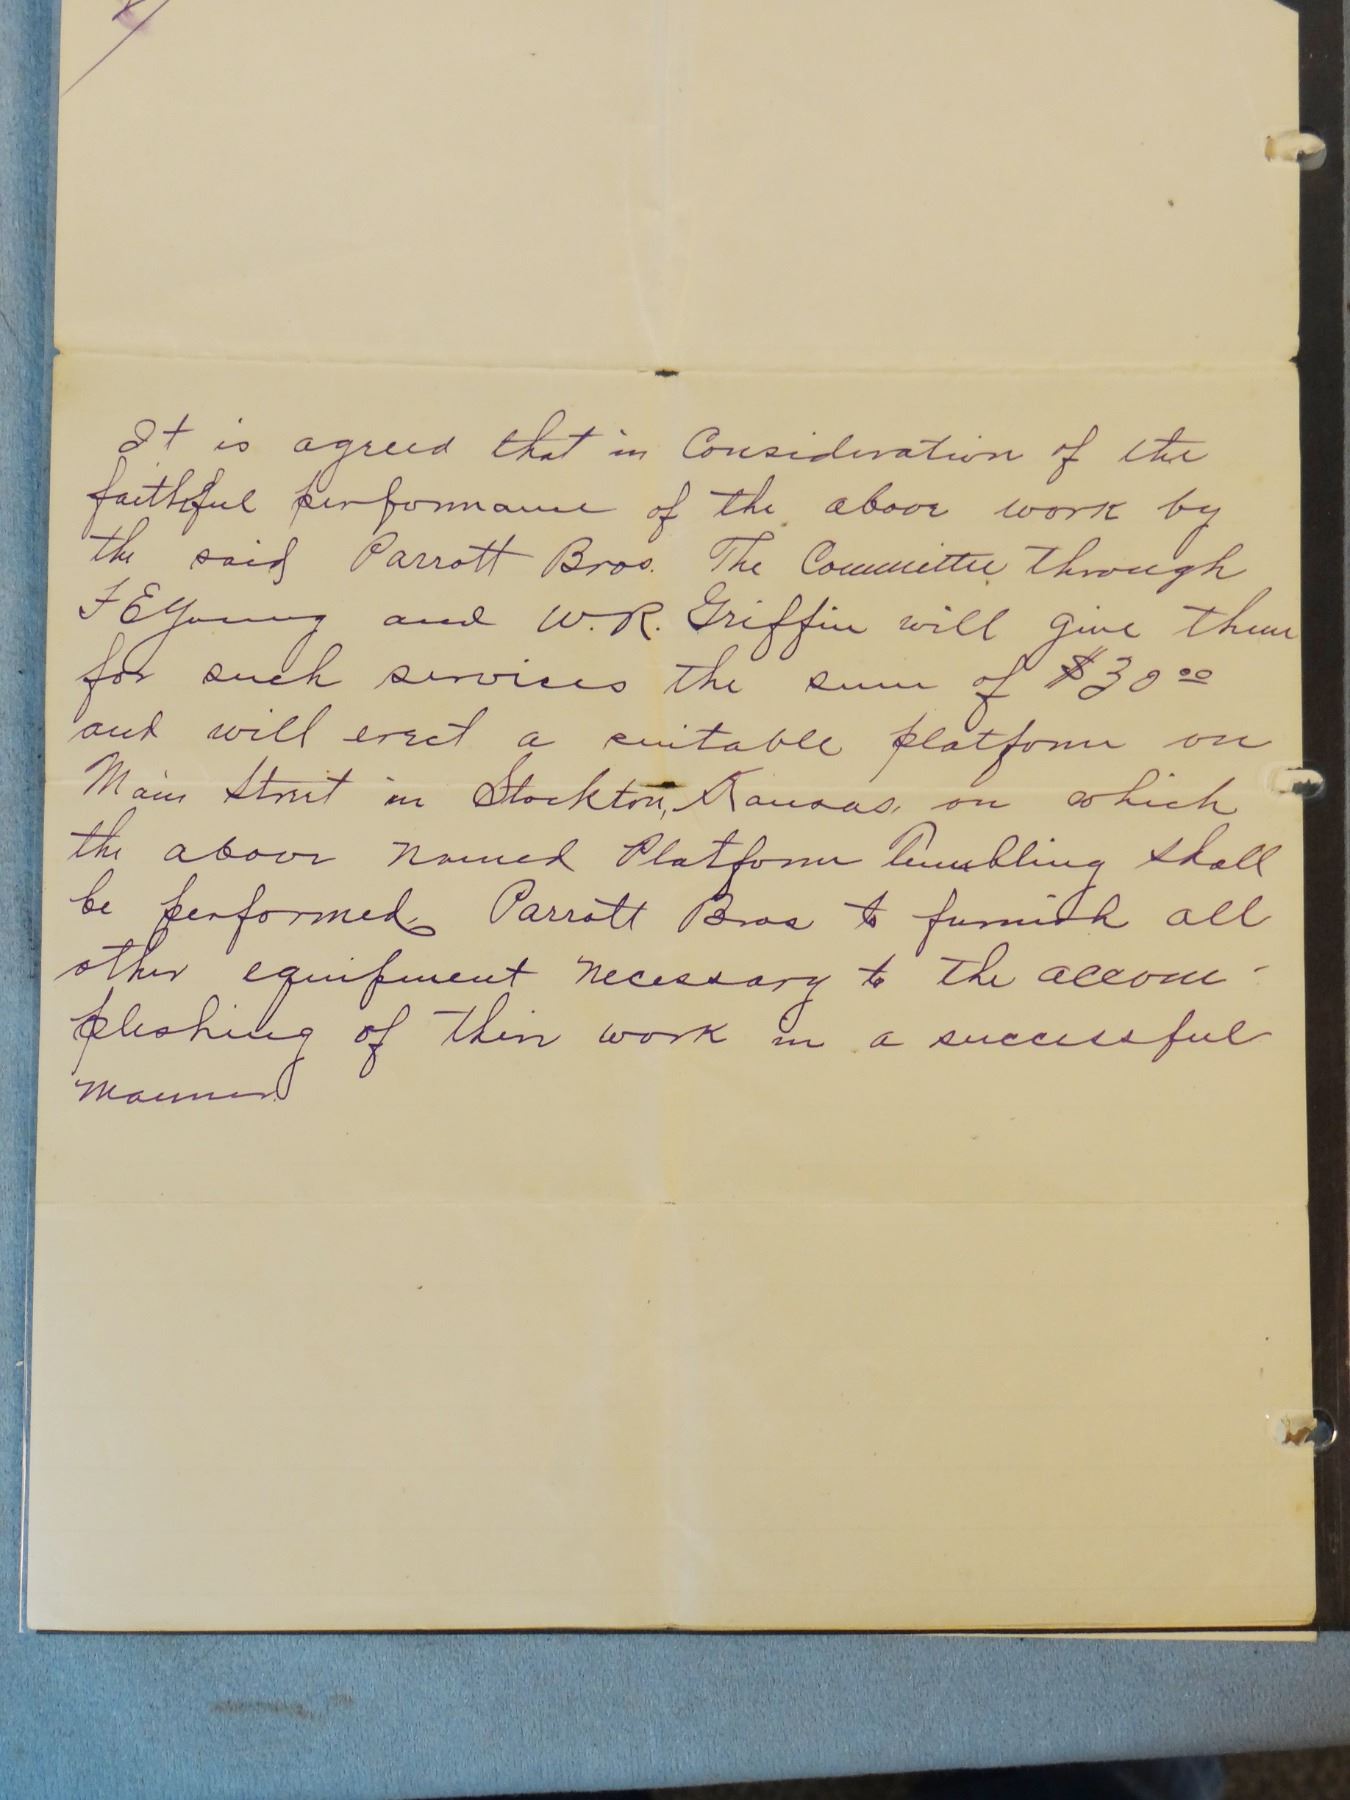 It is agreed that in Consideration of the
faithful performance of the above work by
the said Parrott Bros. The Committee through
F E Young and W. R. Griffin will give them
for such services the sum of $30 00
and will erect a suitable platform on
Main Street in Stockton, Kansas, on which
the above named Platform Tumbling shall
be performed. Parrott Bros to furnish all
other equipment necessary to the accom-
plishing of their work in a successful
manner.